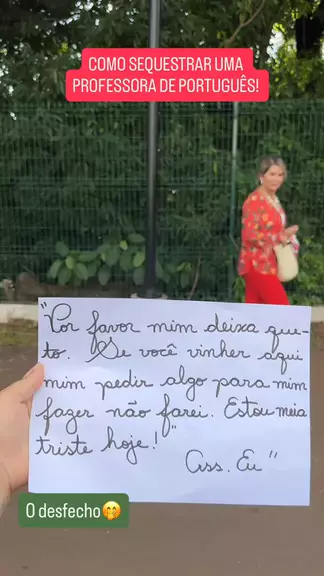 COMO SEQUESTRAR UMA
PROFESSORA DE PORTUGUÊS!
"Por favor mim deixa que-
to. Se você vinher aqui
mim pedir algo para mim
fazer não farei. Estou meia
triste hoje!"
Ass. Eu"
O desfecho🤭